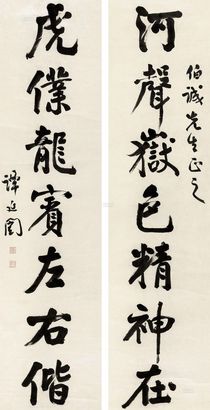 伯诚先生正之
河聲嶽色精神在
虎僕龍賓左右偕
譚延闓